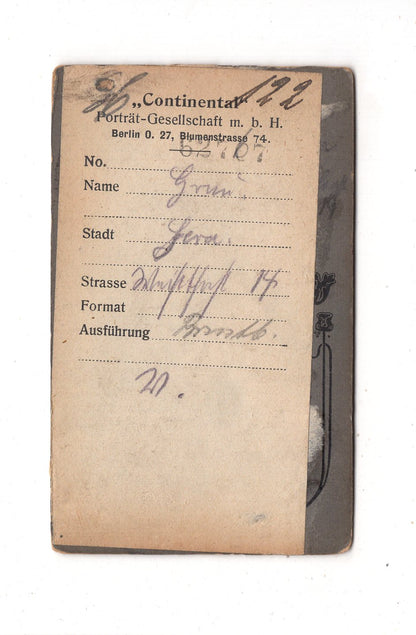 122
„Continental"
Porträt-Gesellschaft m. b. H.
Berlin O. 27, Blumenstrasse 74.
62767
No.
Name Grau.
Stadt Gera.
Strasse 14
Format
Ausführung